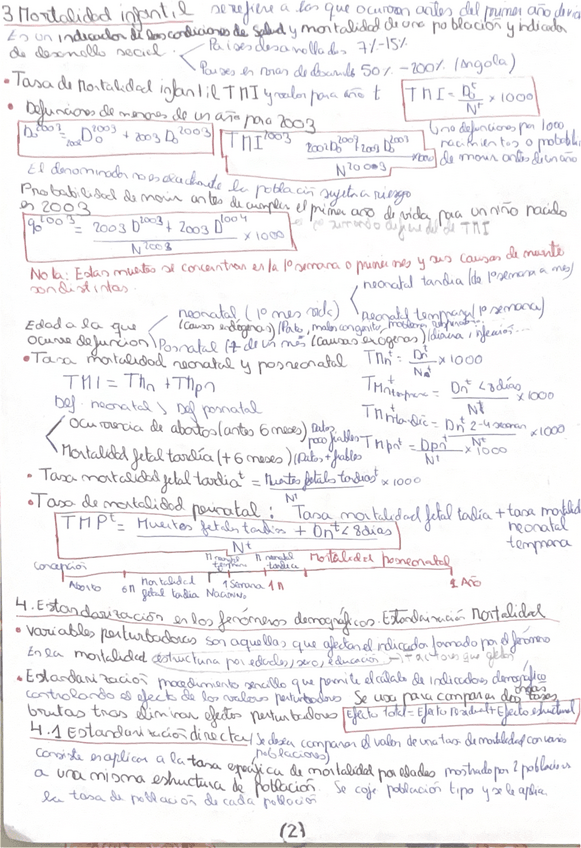 3 Mortalidad infantil se refiere a las que ocurren antes del primer año de vida
Es un indicador de las condiciones de salud y mortalidad de una población y indicador
de desarrollo social. Países desarrollados 7%-15%
Países en vías de desarrollo 50% - 200% (Angola)
• Tasa de Mortalidad infantil TMI y valor para año t TMI = D₀ᵗ / Nᵗ x 1000
• Defunciones de menores de un año para 2003
D₀²⁰⁰³ = 2002D₀²⁰⁰³ + 2003D₀²⁰⁰³ TMI²⁰⁰³ = 2002D₀²⁰⁰³ + 2003D₀²⁰⁰³ / N2003 x1000 defunciones por 1000
nacimientos o probabl.
de morir antes de un año
El denominador no es exactamente la población sujeta a riesgo
Probabilidad de morir antes de cumplir el primer año de vida para un niño nacido
en 2003
q₀²⁰⁰³ = 2003D²⁰⁰³ + 2003D²⁰⁰⁴ / N2003 x 1000 difiere de TMI
Nota: Estas muertes se concentran en la 1º semana o primer mes y sus causas de muerte
son distintas.
neonatal tardía (de 1º semana a mes)
neonatal (1º mes vida) neonatal temprana (1º semana)
Edad a la que (causas endógenas)
ocurre defunción Posnatal (+ de un mes) (causas exógenas) / diarrea, infección...
• Tasa mortalidad neonatal y posneonatal TMnᵗ = Dnᵗ / Nᵗ x 1000
TMI = TMn + TMpn TMnᵗtemprana = Dnᵗ <8días / Nᵗ x1000
Def. neonatal > Def posnatal
Ocurrencia de abortos (antes 6 meses) Datos poco fiables TMntardía = Dnᵗ 2-4 seman / Nᵗ x1000
Mortalidad fetal tardía (+6 meses) / Datos + fiables TMpnᵗ = Dpnᵗ / Nᵗ x 1000
• Tasa mortalidad fetal tardíaᵗ = Muertes fetales tardíasᵗ / Nᵗ x 1000
• Tasa de mortalidad perinatal: Tasa mortalidad fetal tardía + tasa mortalidad
neonatal
temprana
TMPᵗ = Muertos fetales tardíos + Dnᵗ <8 días / Nᵗ
Concepción M neonatal temprana M neonatal tardía Mortalidad posneonatal
Aborto 6M Mortalidad fetal tardía Nacimiento 1 Semana 1M 1 Año
4. Estandarización en los fenómenos demográficos. Estandarización Mortalidad
• Variables perturbadoras son aquellas que afectan el indicador formado por el fenómeno
En la mortalidad (estructura por edades, sexo, educación
• Estandarización procedimiento sencillo que permite el cálculo de indicadores demográficos
controlando el efecto de los valores perturbadores Se usa para comparar dos tasas
brutas tras eliminar efectos perturbadores Efecto total = Efecto residual + Efecto estructural
4.1 Estandarización directa / se desea comparar el valor de una tasa de mortalidad con varias
poblaciones)
Consiste en aplicar a la tasa específica de mortalidad por edades mostrado por 2 poblaciones
a una misma estructura de población. Se coje población tipo y se le aplica
la tasa de población de cada población
(2)